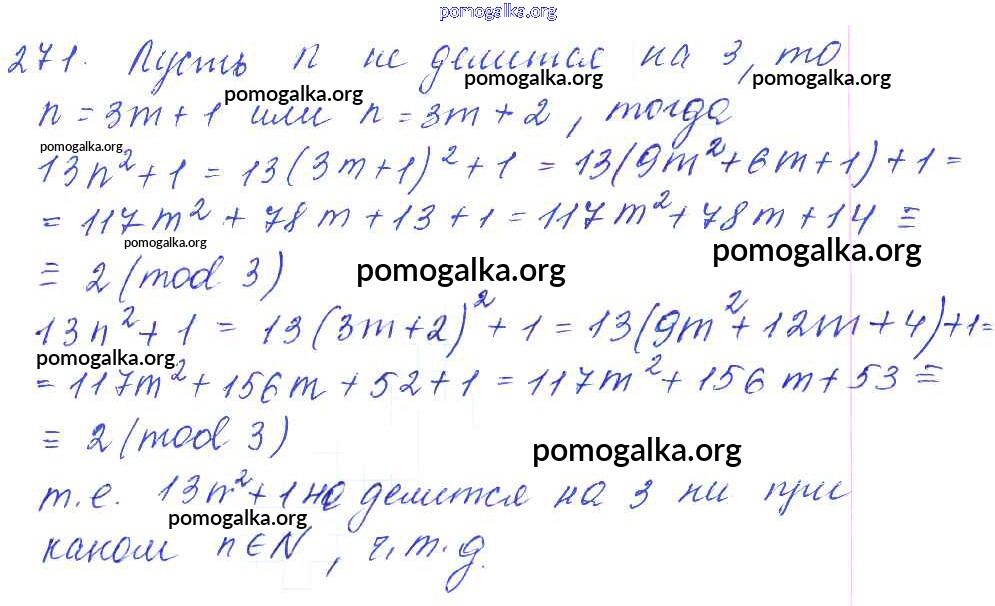 pomogalka.org
271. Пусть n не делится на 3, то
pomogalka.org pomogalka.org
pomogalka.org
n = 3m + 1 или n = 3m + 2, тогда
pomogalka.org
13n² + 1 = 13(3m+1)² + 1 = 13(9m² + 6m + 1) + 1 =
= 117m² + 78m + 13 + 1 = 117m² + 78m + 14 ≡
pomogalka.org pomogalka.org
≡ 2 (mod 3)
pomogalka.org
13n² + 1 = 13(3m+2)² + 1 = 13(9m² + 12m + 4) + 1 =
pomogalka.org
= 117m² + 156m + 52 + 1 = 117m² + 156m + 53 ≡
≡ 2 (mod 3)
pomogalka.org
т.е. 13n² + 1 не делится на 3 ни при
pomogalka.org
каком n ∈ N, ч.т.д.